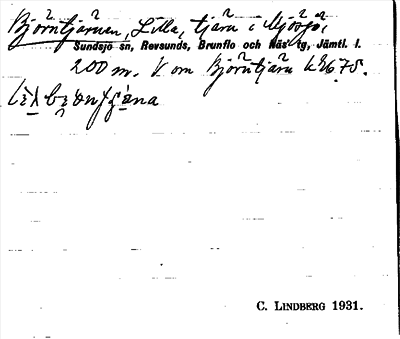 Björntjärnen, Lilla, tjärn i Mjösjö,
Sundsjö sn, Revsunds, Brunflo och Näs tg, Jämtl. l.
200 m. V. om Björntjärn
C. LINDBERG 1931.